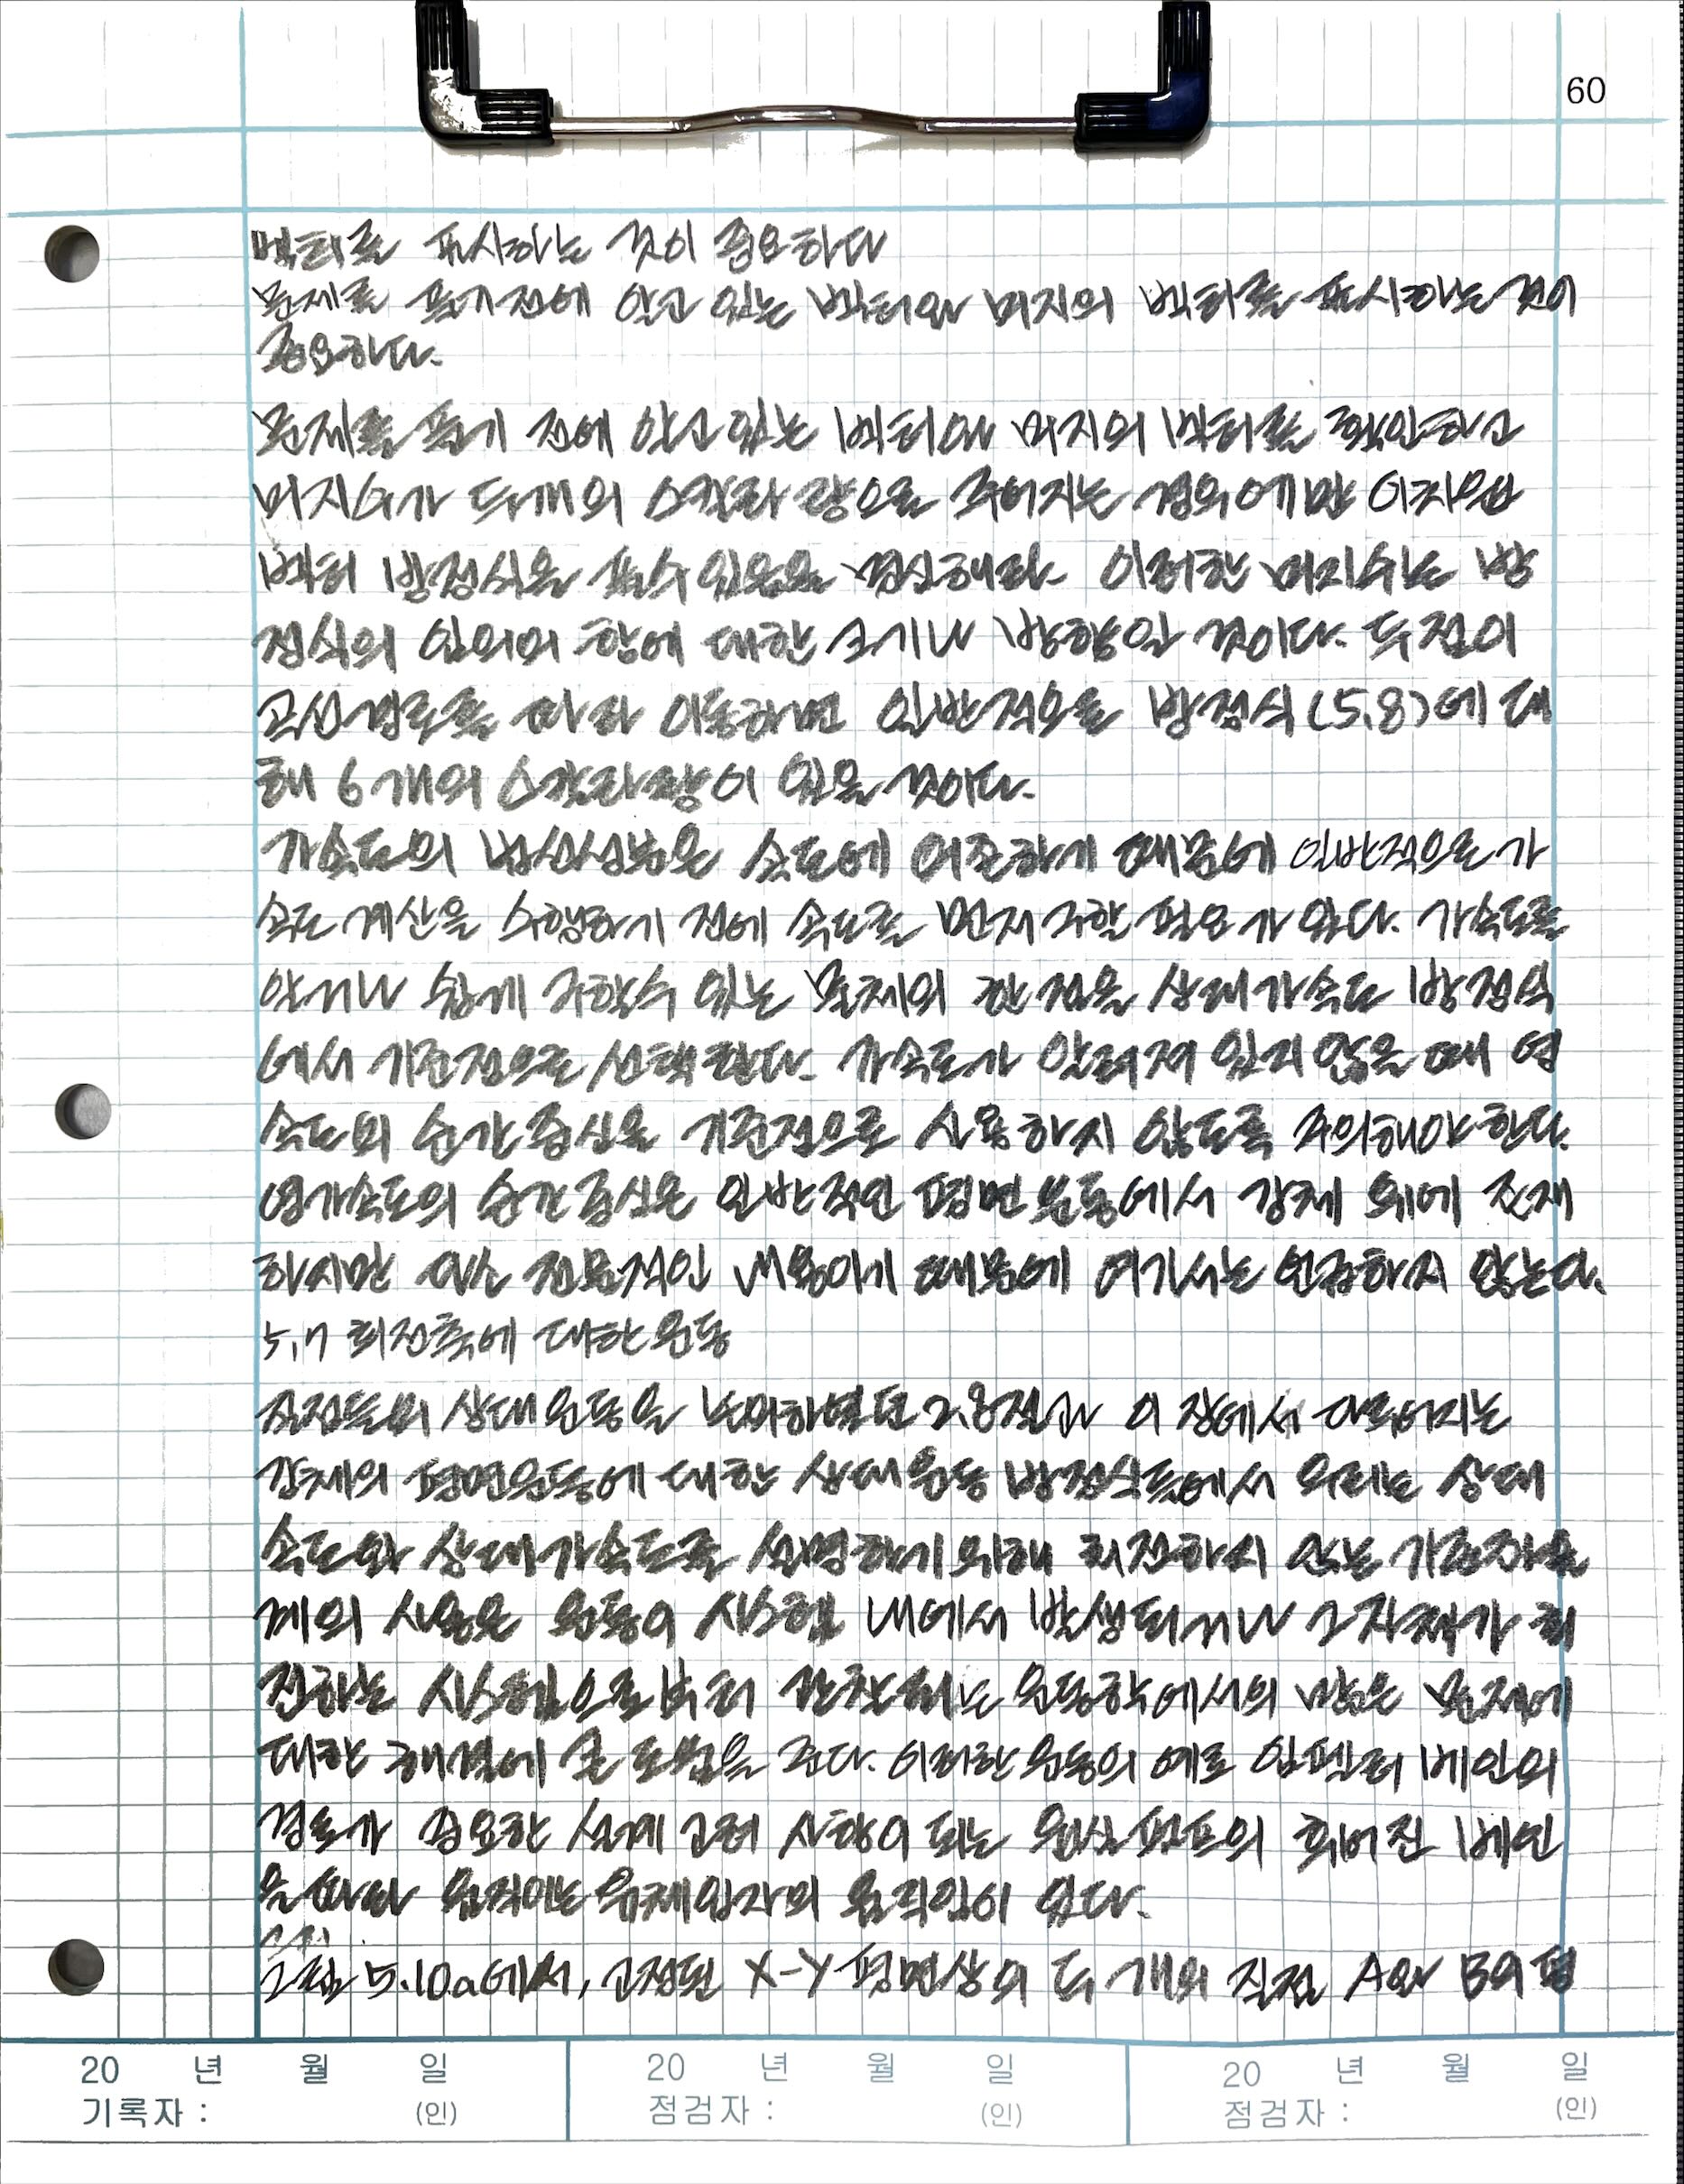 60
벡터를 표시하는 것이 중요하다
문제를 풀기 전에 알고 있는 벡터와 미지의 벡터를 표시하는 것이
중요하다.
문제를 풀기 전에 알고 있는 벡터와 미지의 벡터를 확인하고
미지수가 두개의 스칼라 량으로 주어지는 경우에만 이차원
벡터 방정식을 풀수 있음을 명심해라. 이러한 미지수는 방
정식의 임의의 항에 대한 크기나 방향일 것이다. 두 점이
곡선경로를 따라 이동하면 일반적으로 방정식 (5.8)에 대
해 6개의 스칼라량이 있을 것이다.
가속도의 법선성분은 속도에 의존하기 때문에 일반적으로 가
속도 계산을 수행하기 전에 속도를 먼저 구할 필요가 있다. 가속도를
알거나 쉽게 구할수 있는 물체의 한 점을 상대가속도 방정식
에서 기준점으로 선택한다. 가속도가 알려져 있지 않을 때 영
속도의 순간 중심을 기준점으로 사용하지 않도록 주의해야 한다.
영가속도의 순간 중심은 일반적인 평면 운동에서 강체 위에 존재
하지만 다소 전문적인 내용이기 때문에 여기서는 언급하지 않는다.
5.7 회전축에 대한 운동
질점들의 상대운동을 논의하였던 2.8절과 이 장에서 다루어지는
강체의 평면운동에 대한 상대운동 방정식들에서 우리는 상대
속도와 상대가속도를 설명하기 위해 회전하지 않는 기준좌표
계의 사용은 운동이 시스템 내에서 발생되거나 그 자체가 회
전하는 시스템으로부터 관찰되는 운동학에서의 많은 문제에
대한 해결에 큰 도움을 준다. 이러한 운동의 예로 임펠러 베인의
경로가 중요한 설계 고려 사항이 되는 원심 펌프의 휘어진 베인
을 따라 움직이는 유체입자의 움직임이 있다.
그림 5.10a에서, 고정된 X-Y 평면상의 두 개의 질점 A와 B의 평
20 년 월 일 20 년 월 일 20 년 월 일
기록자 : (인) 점검자 : (인) 점검자 : (인)